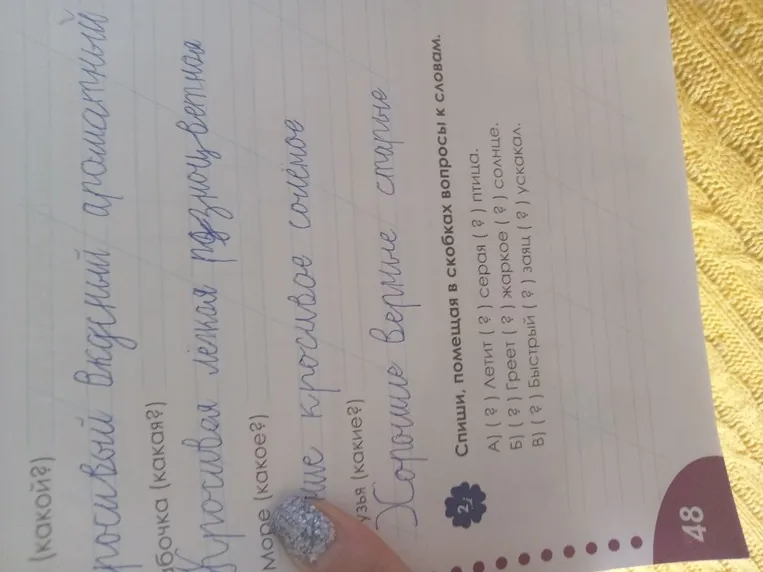 (какой?)
вкусный ароматный
(какая?)
Красивая лёгкая разноцветная
Море (какое?)
красивое солёное
(какие?)
Хорошие верные старые
2. Спиши, помещая в скобках вопросы к словам.
А) ( ? ) Летит ( ? ) серая ( ? ) птица.
Б) ( ? ) Греет ( ? ) жаркое ( ? ) солнце.
В) ( ? ) Быстрый ( ? ) заяц ( ? ) ускакал.
48